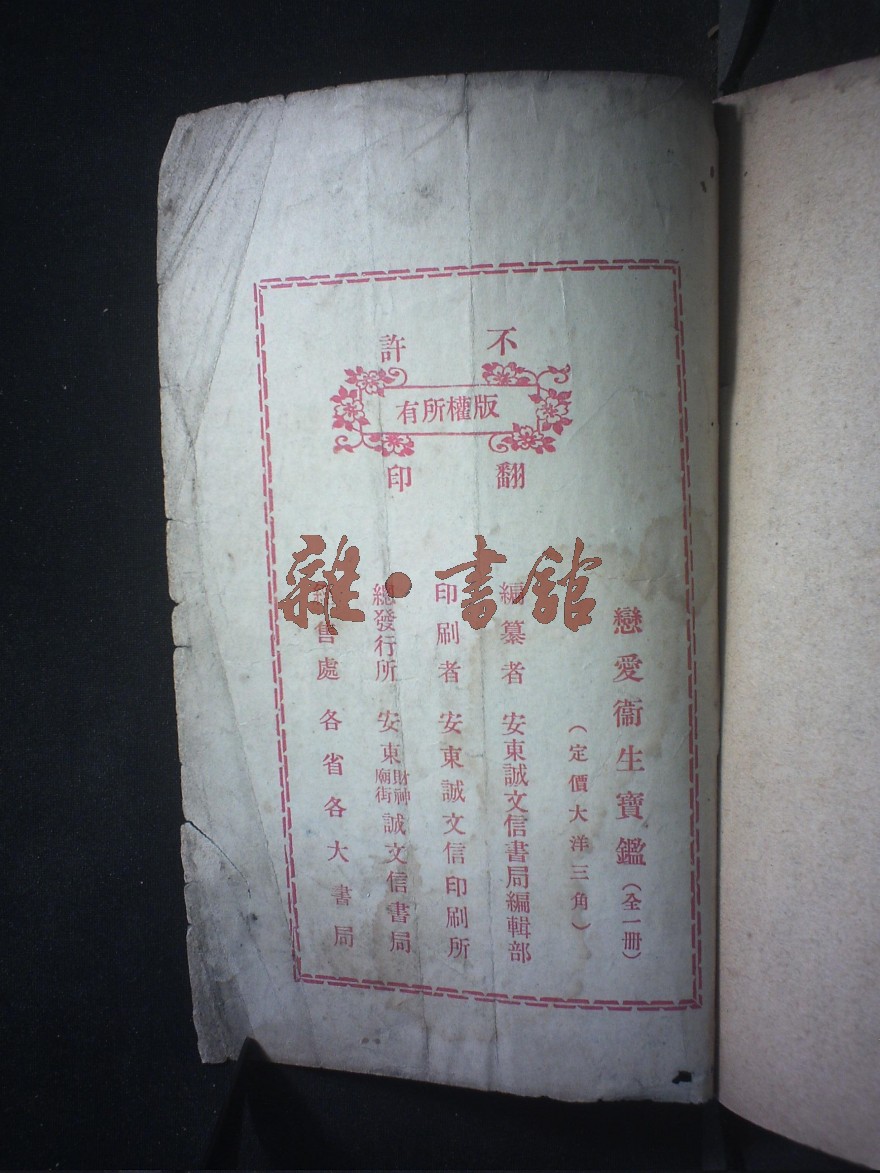 不許
版權所有
翻印
戀愛衞生寶鑑（全一册）
（定價大洋三角）
編纂者 安東誠文信書局編輯部
印刷者 安東誠文信印刷所
總發行所 安東財神廟街誠文信書局
售處 各省各大書局
雜·書館